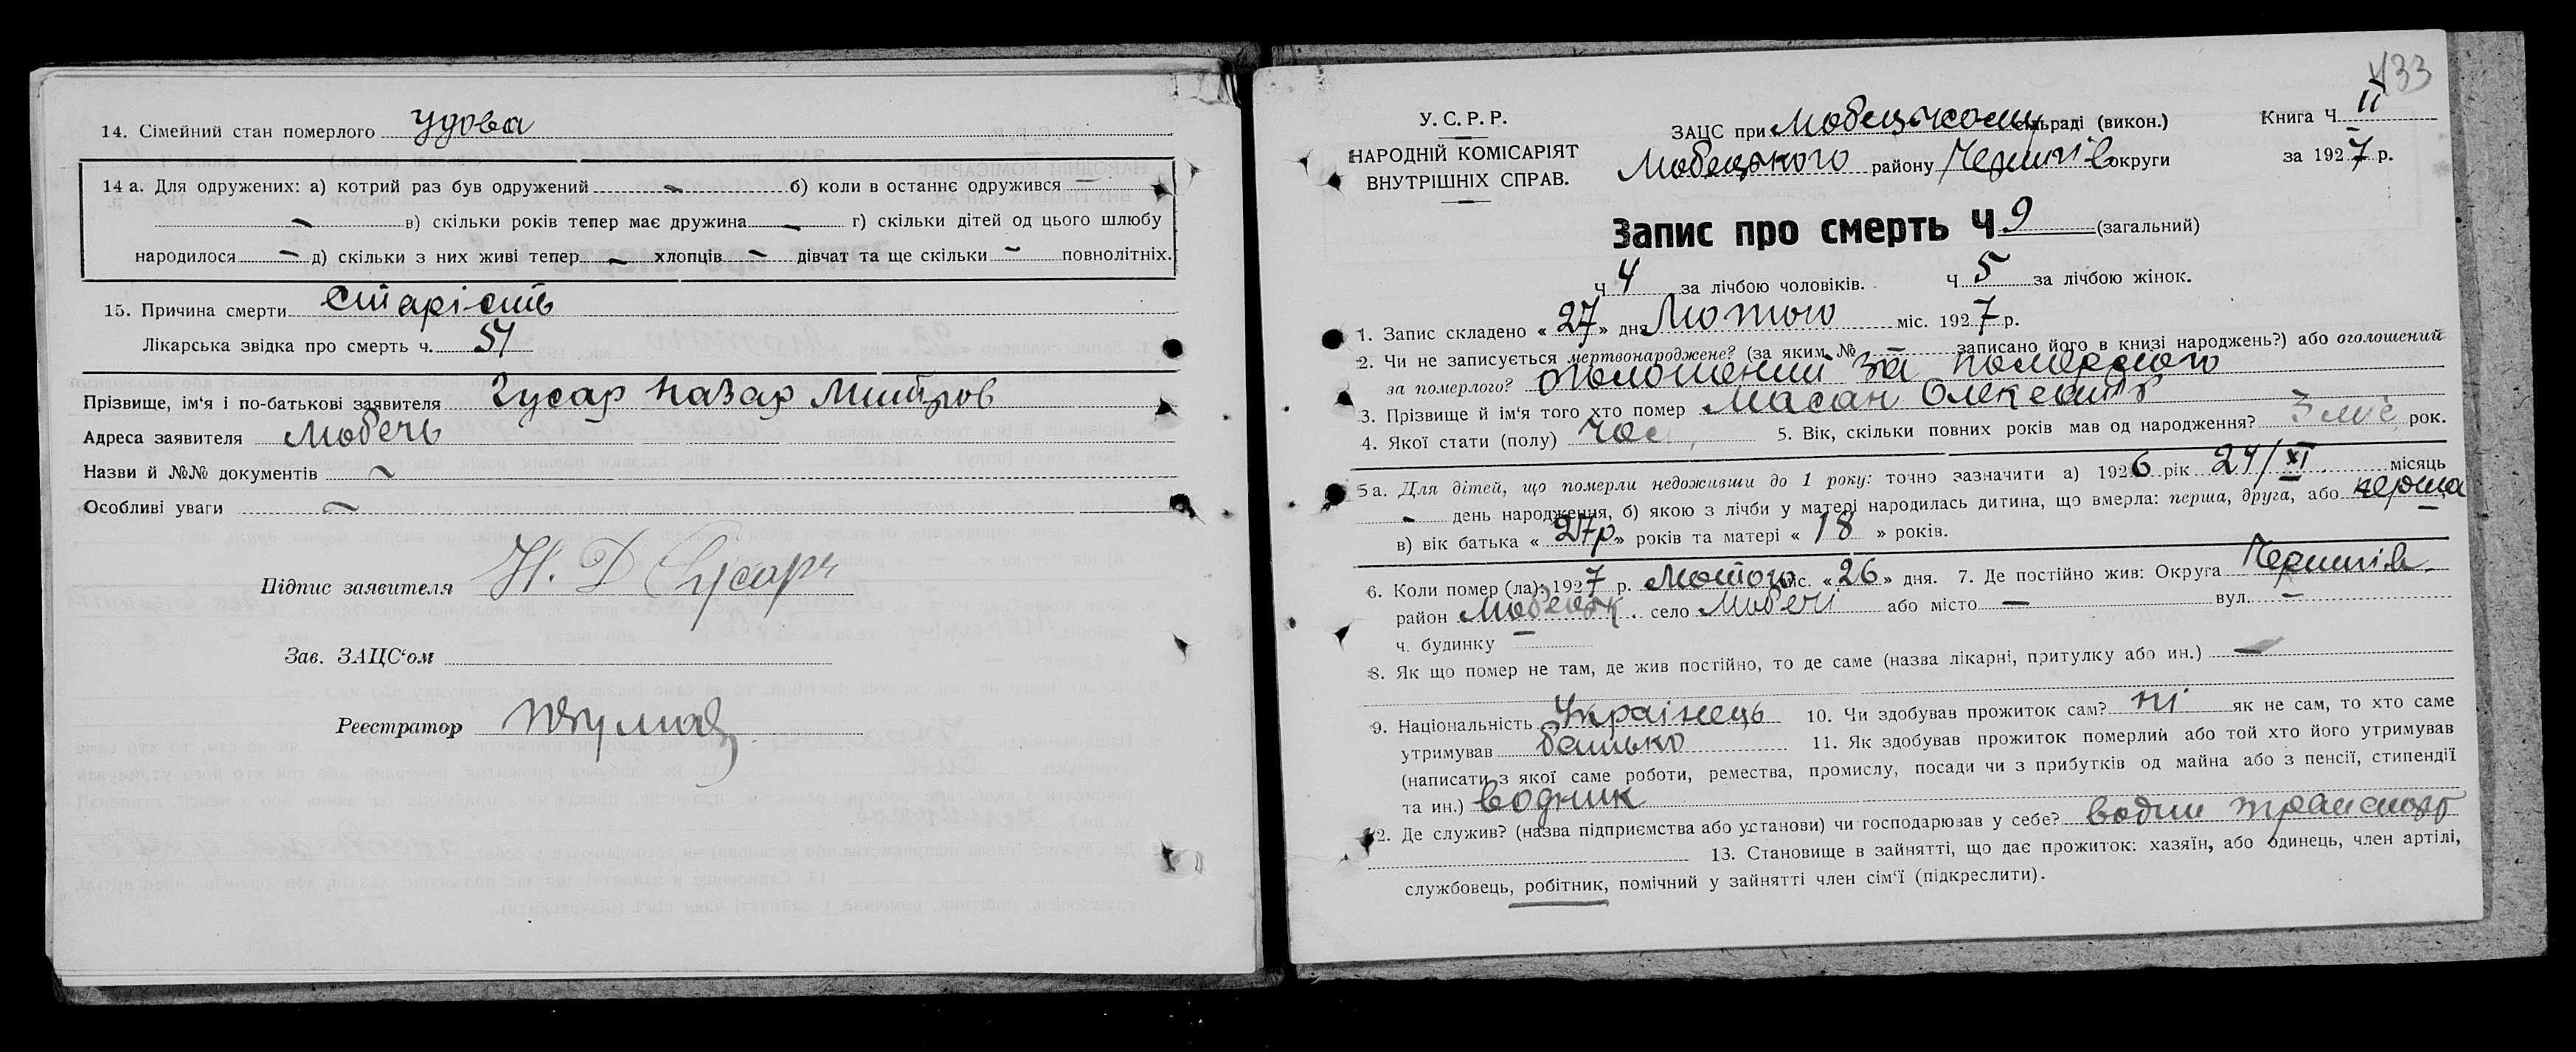 14. Сімейний стан померлого удова
14 а. Для одружених: а) котрий раз був одружений — б) коли в останнє одружився —
— в) скільки років тепер має дружина — г) скільки дітей од цього шлюбу
народилося — д) скільки з них живі тепер — хлопців — дівчат та ще скільки — повнолітніх.
15. Причина смерти старість
Лікарська звідка про смерть ч. 54
Прізвище, ім'я і по-батькові заявителя Гусар Назар Митров
Адреса заявителя Любечь
Назви й №№ документів —
Особливі уваги —
Підпис заявителя Н. Д Гусарь
Зав. ЗАЦС'ом
Реєстратор
433
У. С. Р. Р.
НАРОДНІЙ КОМІСАРІЯТ
ВНУТРІШНІХ СПРАВ.
ЗАЦС при Любецькому сільраді (викон.)
Любецького району Чернигів округи
Книга Ч II
за 1927 р.
Запис про смерть Ч 9 (загальний)
Ч 4 за лічбою чоловіків. Ч 5 за лічбою жінок.
1. Запис складено « 27 » дня Лютого міс. 1927 р.
2. Чи не записується мертвонароджене? (за яким № — записано його в книзі народжень?) або оголошений
за померлого? оголошений за померлого
3. Прізвище й ім'я того хто помер Масан
4. Якої стати (полу) чол. 5. Вік, скільки повних років мав од народження? 3 міс. рок.
5а. Для дітей, що померли недоживши до 1 року: точно зазначити а) 1926 рік 24/XI місяць
— день народження, б) якою з лічби у матері народилась дитина, що вмерла: перша, друга, або перша
в) вік батька « 27р » років та матері « 18 » років.
6. Коли помер (ла): 1927 р. Лютого міс. « 26 » дня. 7. Де постійно жив: Округа Чернигів
район Любецьк. село Любечі або місто — вул. —
ч. будинку —
8. Як що помер не там, де жив постійно, то де саме (назва лікарні, притулку або ин.) —
9. Національність Українець 10. Чи здобував прожиток сам? ні як не сам, то хто саме
утримував батько 11. Як здобував прожиток померлий або той хто його утримував
(написати з якої саме роботи, ремества, промислу, посади чи з прибутків од майна або з пенсії, стипендії
та ин.) водник
12. Де служив? (назва підприємства або установи) чи господарював у себе? водний транспорт
13. Становище в зайнятті, що дає прожиток: хазяїн, або одинець, член артілі,
службовець, робітник, помічний у зайнятті член сім'ї (підкреслити).